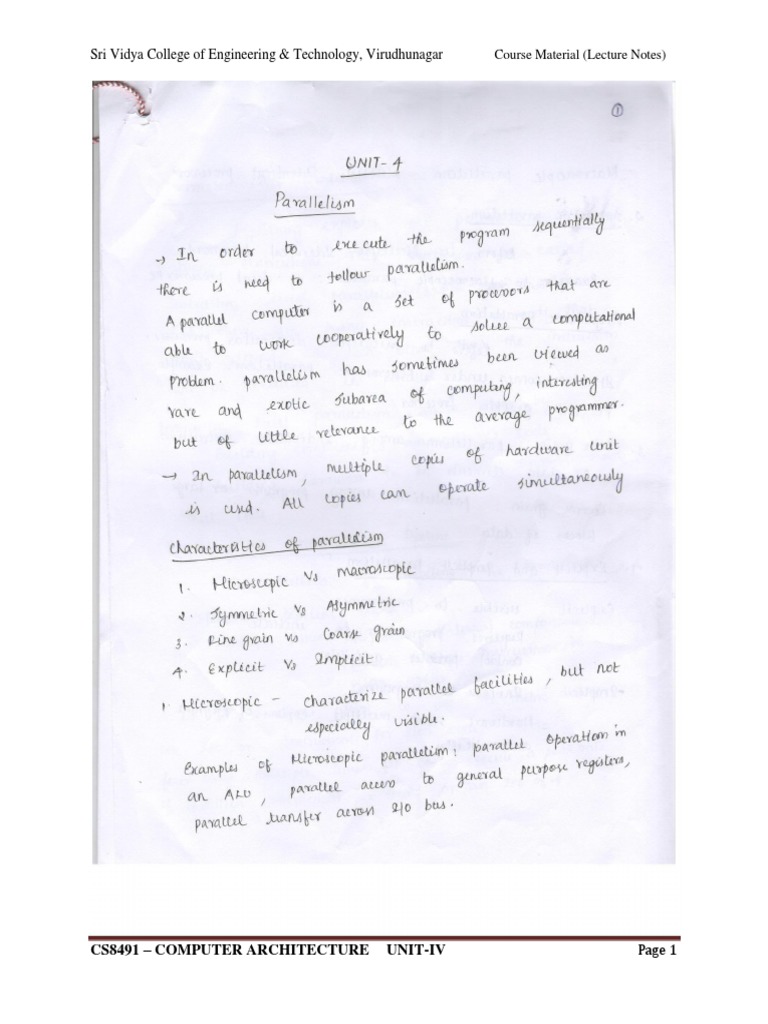 Sri Vidya College of Engineering & Technology, Virudhunagar Course Material (Lecture Notes)
1
UNIT-4
Parallelism
→ In order to execute the program sequentially
there is need to follow parallelism.
A parallel computer is a set of processors that are
able to work cooperatively to solve a computational
problem. parallelism has sometimes been viewed as
rare and exotic subarea of computing, interesting
but of little relevance to the average programmer.
→ In parallelism, multiple copies of hardware unit
is used. All copies can operate simultaneously
Characteristics of parallelism
1. Microscopic Vs macroscopic
2. Symmetric vs Asymmetric
3. Fine grain vs Coarse grain
4. Explicit Vs Implicit
1. Microscopic - characterize parallel facilities, but not
especially visible.
Examples of Microscopic parallelism: parallel operation in
an ALU, parallel access to general purpose registers,
parallel transfer across I/O bus.
CS8491 – COMPUTER ARCHITECTURE UNIT-IV Page 1